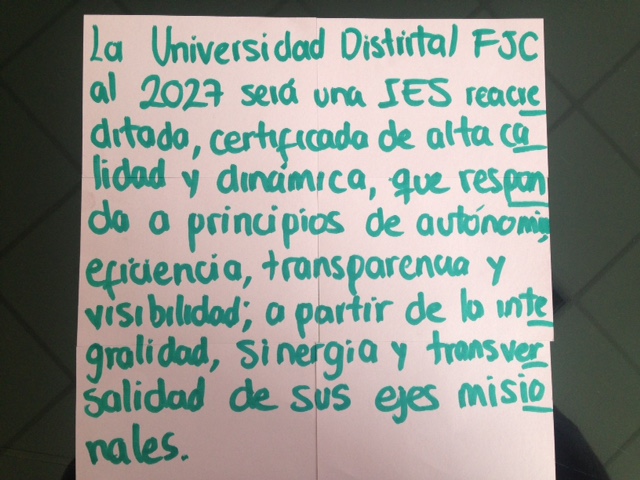 La Universidad Distrital FJC
al 2027 será una IES reacre
ditada, certificada de alta ca
lidad y dinámica, que respon
da a principios de autónomia,
eficiencia, transparencia y
visibilidad; a partir de la inte
gralidad, sinergia y transver
salidad de sus ejes misio
nales.